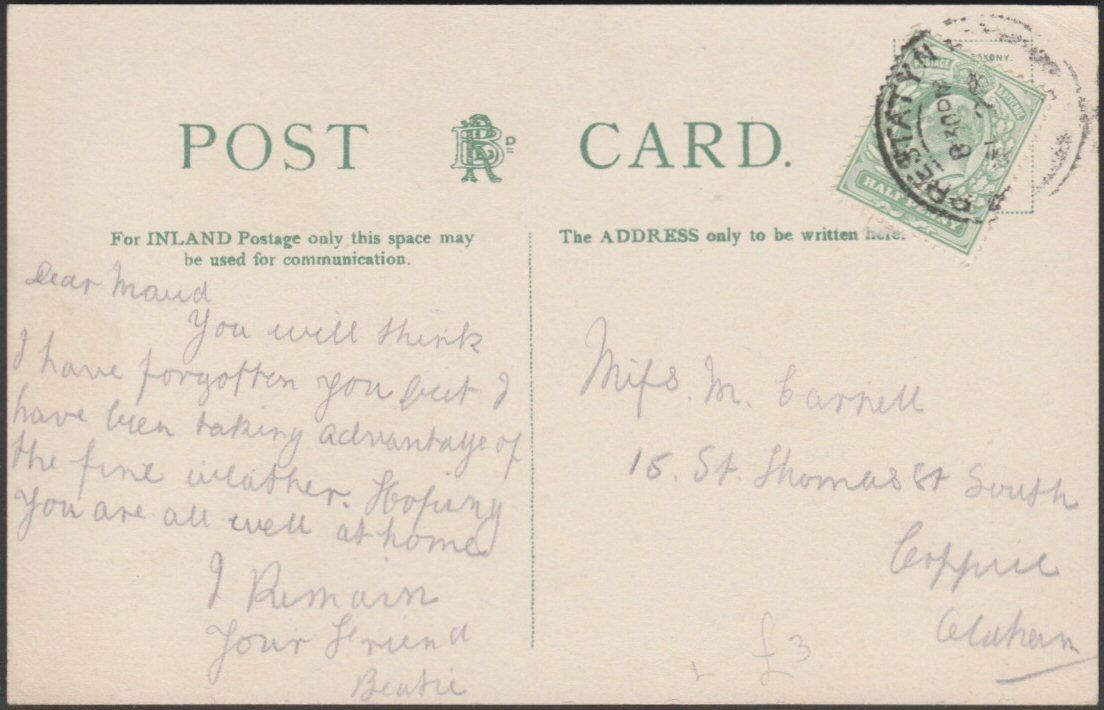 POST CARD.
For INLAND Postage only this space may
be used for communication.
The ADDRESS only to be written here.
PRESTATYN
HALFPENNY
Dear Maud
You will think
I have forgotten you but I
have been taking advantage of
the fine weather. Hoping
you are all well at home
I Remain
Your Friend
Beatie
Miss. M. Carnell
15. St. Thomas St South
Coppice
Oldham
£3